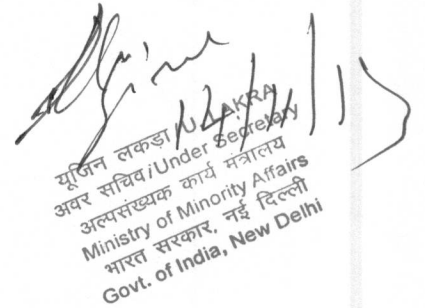 यूजिन लकड़ा / U. LAKRA
अवर सचिव / Under Secretary
अल्पसंख्यक कार्य मंत्रालय
Ministry of Minority Affairs
भारत सरकार, नई दिल्ली
Govt. of India, New Delhi